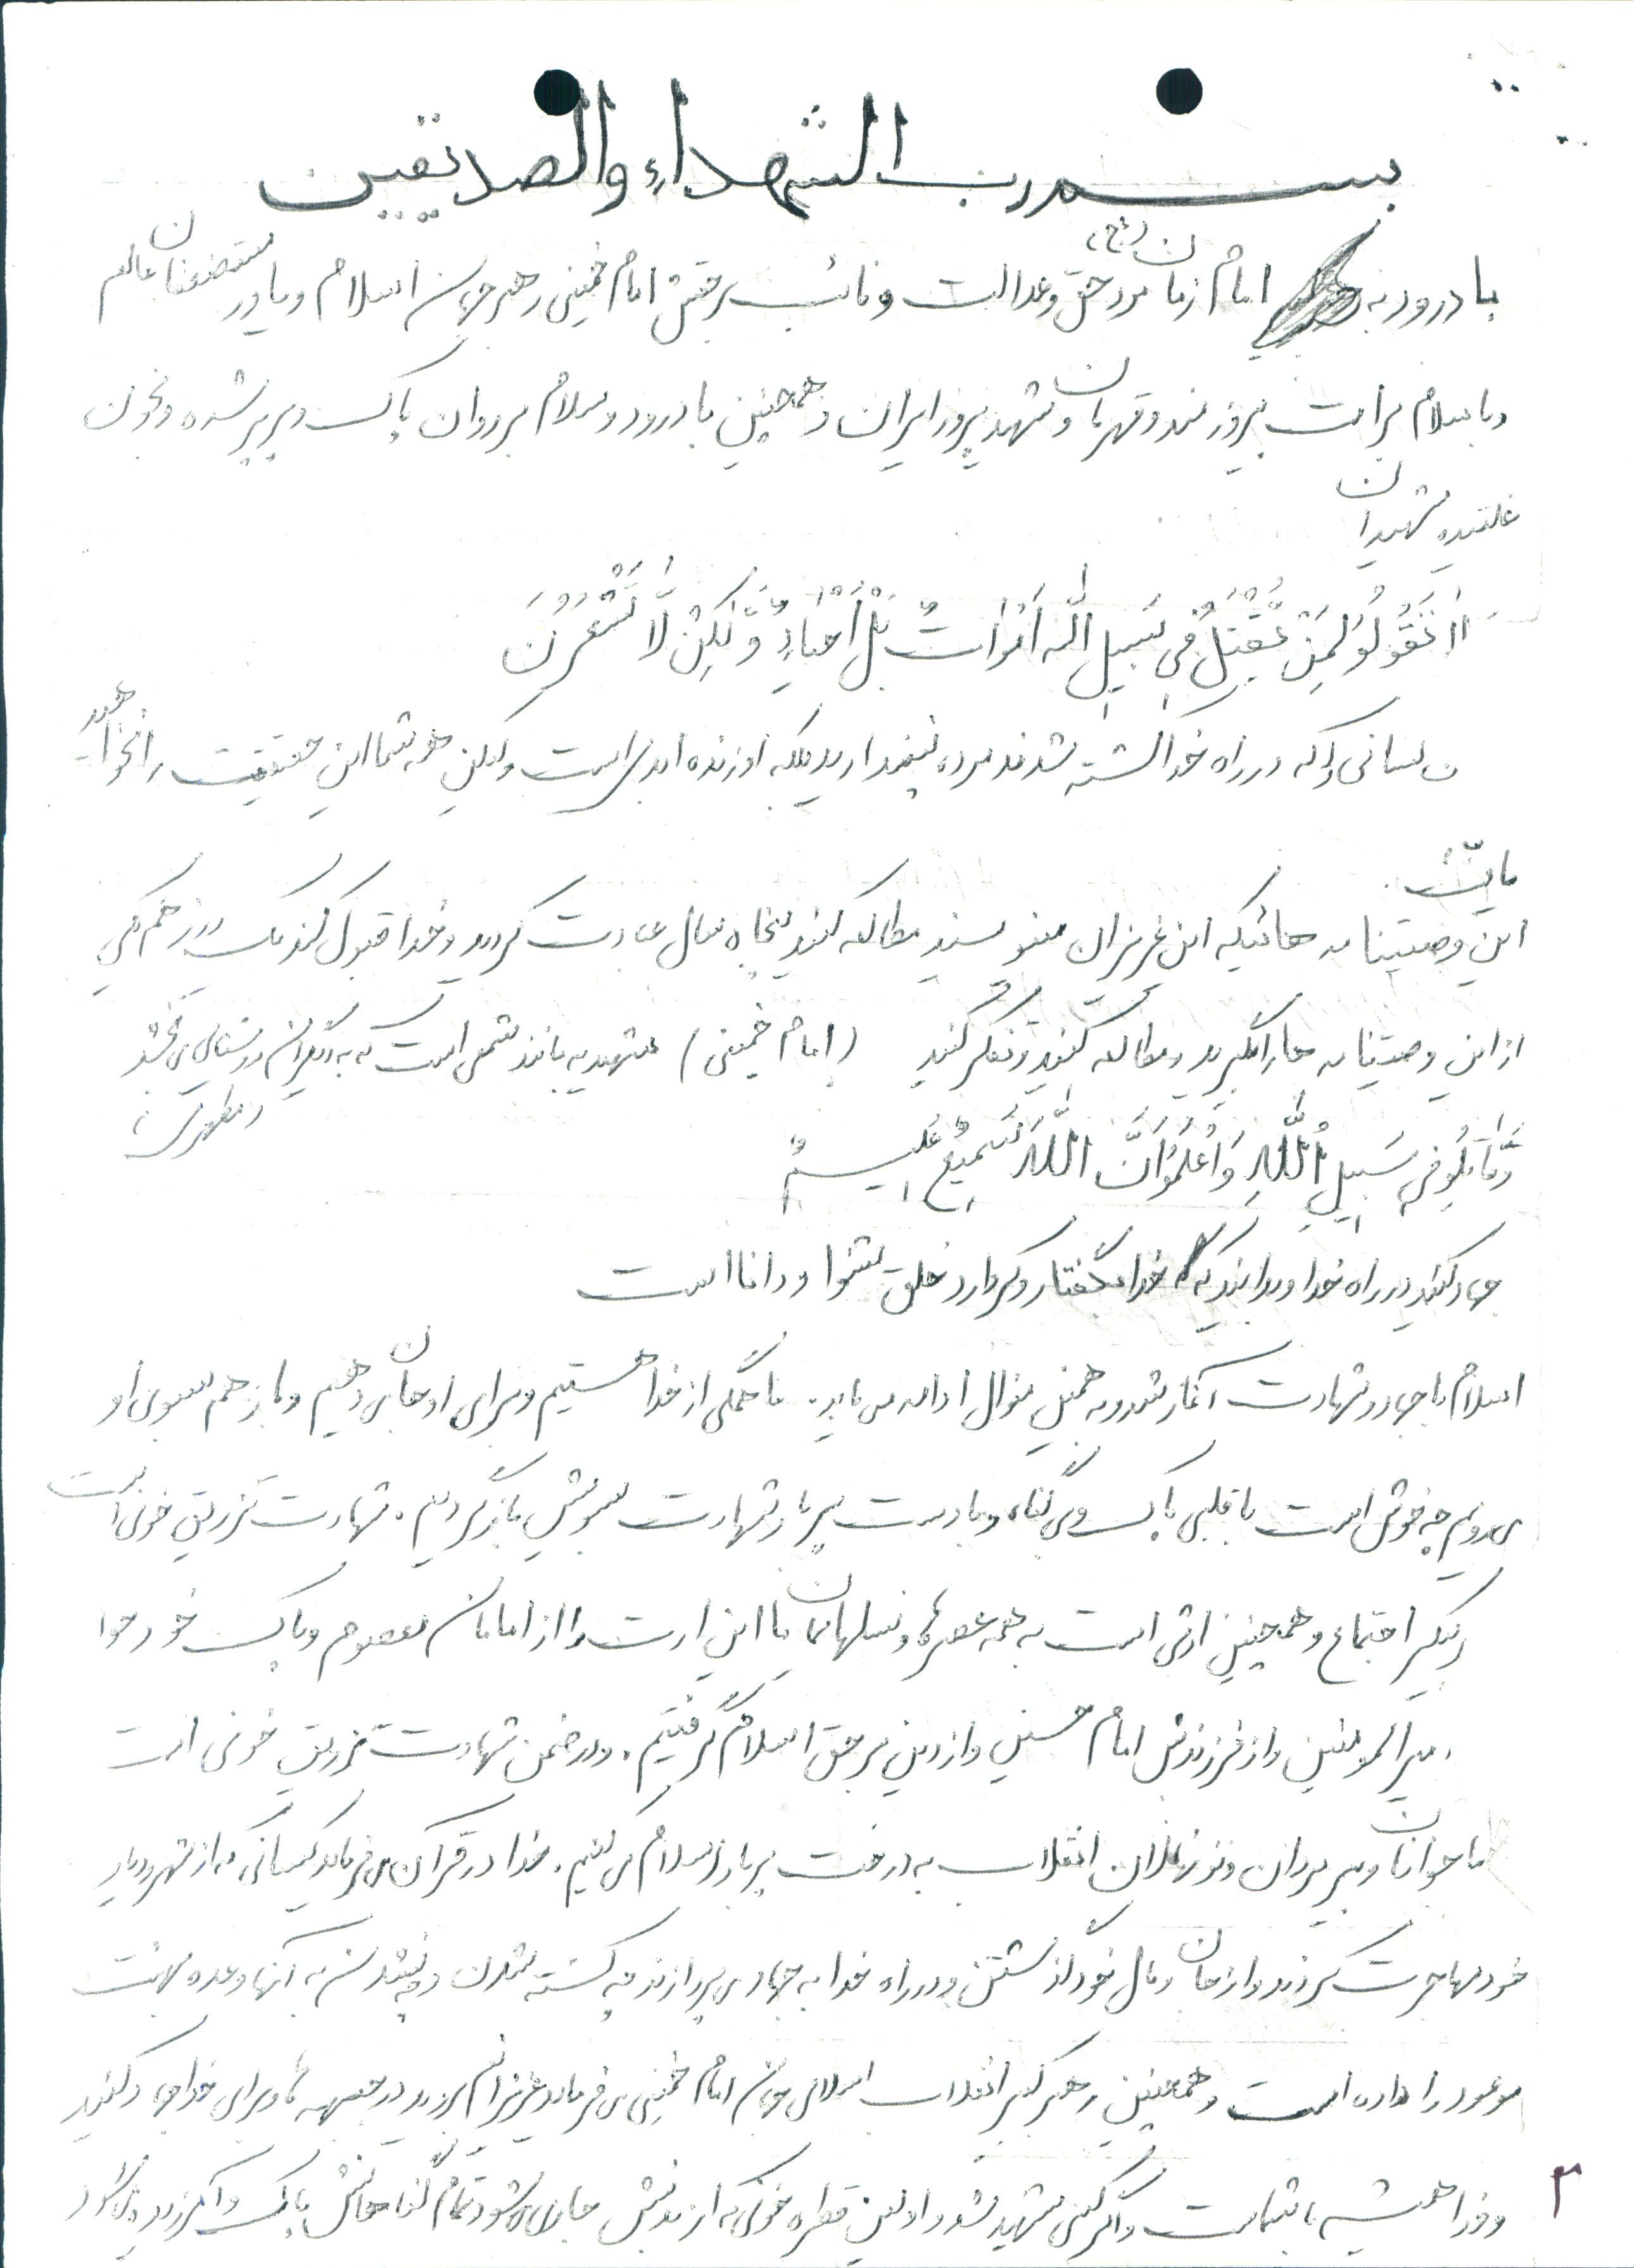 بسم رب الشهداء والصدیقین
با درود به امام زمان (عج) مرد حق و عدالت و نائب برحقش امام خمینی رهبر جهان اسلام و یاور مستضعفان عالم
و با سلام بر امت پیروزمند و قهرمان و شهید پرور ایران و همچنین با درود و سلام بر روان پاک و پرپر شده و بخون
غلتیده شهیدان
لا تَقُولُو لِمَنْ یُقْتَلُ فِی سَبیلِ الله اَمْواتٌ بَلْ اَحْیاءٌ وَلکِنْ لا تَشْعُرُنَ
کسانی را که در راه خدا کشته شدند مرده نپندارید بلکه او زنده ابدی است ولکن همه شما این حقیقت را نخواهید
یافت.
این وصیتنامه هائیکه این عزیزان مینویسند مطالعه کنید پنجاه سال عبادت کردید و خدا قبول کند یک روز هم یکی
از این وصیتنامه ها را بگیرید و مطالعه کنید و تفکر کنید (امام خمینی) شهید به مانند شمعی است که به دیگران روشنائی می بخشد
(مطهری)
وَقاتِلُو فِی سَبیلِ اللّهِ وَاعْلَمُو اَنَّ اللّهَ سَمیعٌ عَلیمٌ
جهاد کنید در راه خدا و بدانید که خدا بگفتار و کردار خلق شنوا و دانا است
اسلام با جهاد و شهادت آغاز شد و به همین منوال ادامه می یابد. ما همگی از خدا هستیم و برای او جان می دهیم و باز هم بسوی او
می رویم چه خوش است با قلبی پاک و بی گناه و با دست پربار شهادت بسویش بازگردیم. شهادت تزریق خونی است
به پیکر اجتماع و همچنین ارثی است به همه عصرها و نسلهایمان ما این ارث را از امامان معصوم و پاک خود
امیرالمومنین و از فرزندش امام حسین و از دین برحق اسلام گرفتیم. و در ضمن شهادت تزریق خونی است
ما جوانان و پیرمردان و نونهالان انقلاب به درخت پربار اسلام می کنیم. خدا در قرآن می فرماید کسانی که از شهر و دیار
خود مهاجرت کردند و از جان و مال خود گذشتن و در راه خدا به جهاد می پردازند چه کشته شدن و چه نشدن به آنها وعده بهشت
موعود را داده است و همچنین رهبر کبیر انقلاب اسلامی جهان امام خمینی می فرماید عزیزانم بروید در جبهه ها و برای خدا جهاد کنید
و خدا همیشه با شماست و اگر کسی شهید شد و اولین قطره خونی که از بدنش جاری می شود تمام گناهانش پاک و آمرزیده می شود
۳